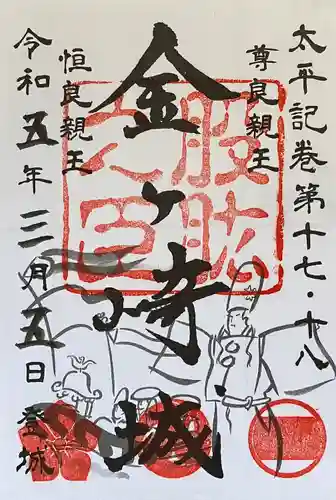 太平記巻第十七・十八
尊良親王
金ヶ崎城
恒良親王
令和五年三月五日登城
股肱之臣